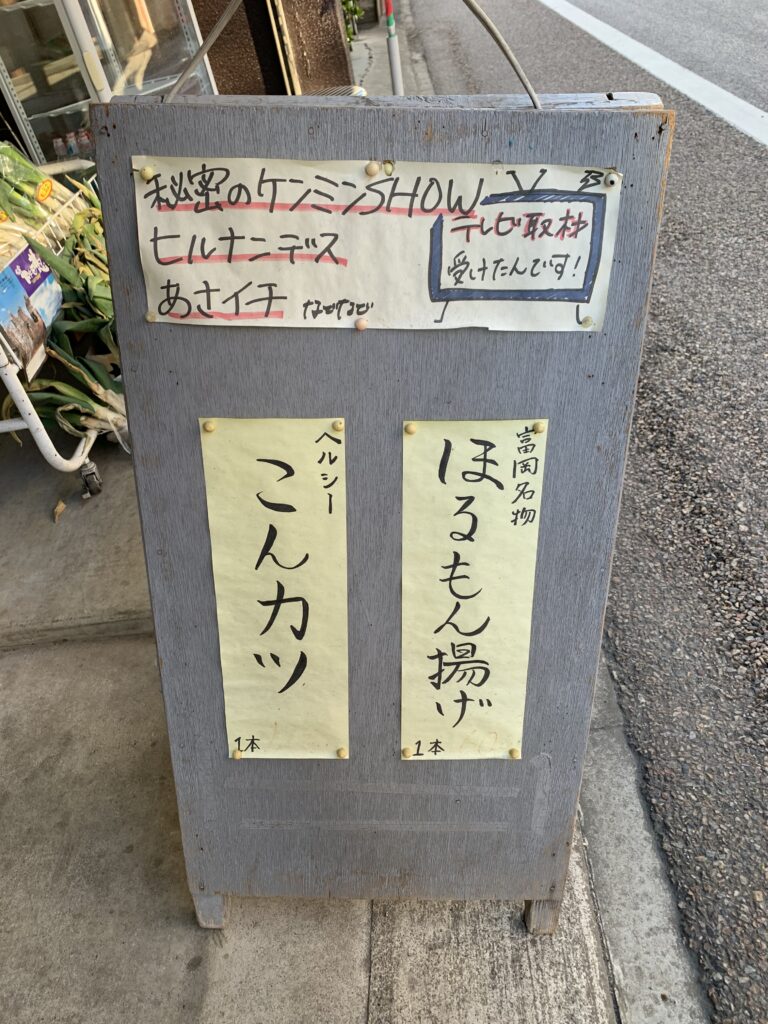 秘密のケンミンSHOW
ヒルナンデス
あさイチ などなど
テレビ取材
受けたんです!
富岡名物
ほるもん揚げ
1本
ヘルシー
こんカツ
1本